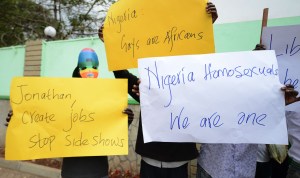 Nigeria
Gays are Africans
Jonathan,
Create jobs
Stop Sideshows
Nigeria Homosexuals
We are one